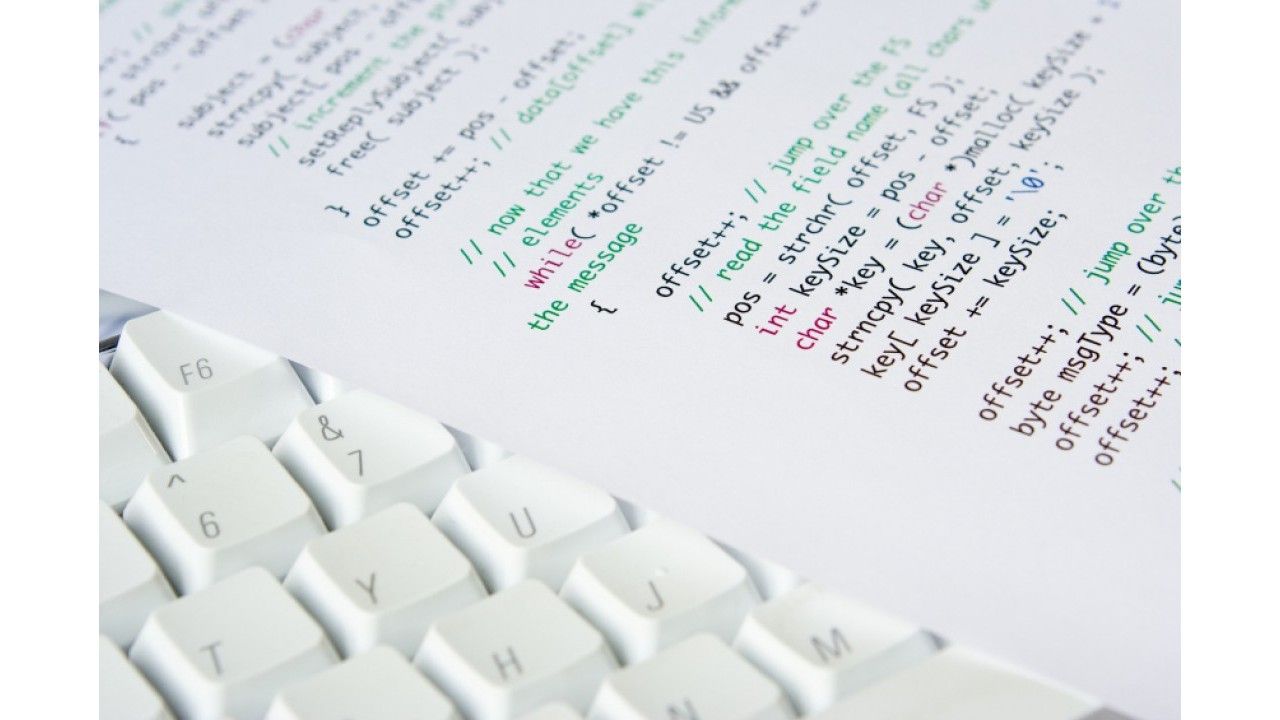 subject = (char
strncpy( subject,
subject[ pos - offset
// increment the
setReplySubject( subject
free( subject );
}
offset += pos - offset;
offset++; // data[offset]
// now that we have this
// elements
while( *offset != US && offset
the message
{
offset++; // jump over the FS
// read the field name (all chars
pos = strchr( offset, FS );
int keySize = pos - offset;
char *key = (char *)malloc( keySize +
strncpy( key, offset, keySize );
key[ keySize ] = '\0';
offset += keySize;
offset++; // jump over
byte msgType = (byte)
offset++; //
offset++;
F6
&
7
^
6
U
Y
J
T
H
M
N